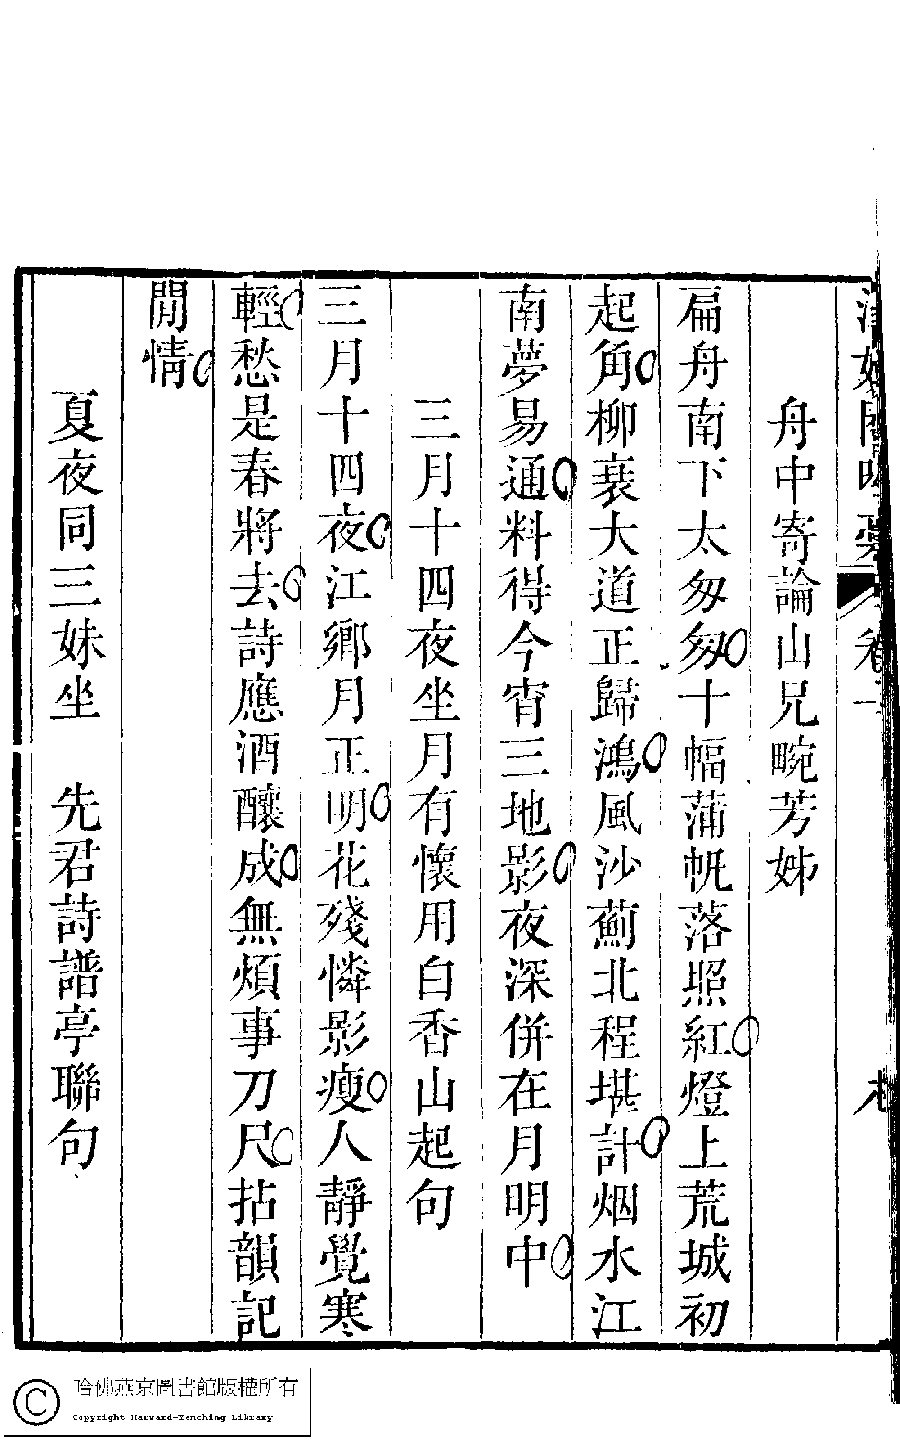 舟中寄論山兄畹芳姊
扁舟南下太匆匆十幅蒲帆落照紅燈上荒城初
起角柳衰大道正歸鴻風沙薊北程堪計烟水江
南夢易通料得今宵三地影夜深併在月明中
三月十四夜坐月有懷用白香山起句
三月十四夜江鄉月正明花殘憐影瘦人靜覺寒
輕愁是春將去詩應酒釀成無煩事刀尺拈韻記
閒情
夏夜同三妹坐 先君詩譜亭聯句
哈佛燕京圖書館版權所有
Copyright Harvard-Yenching Library